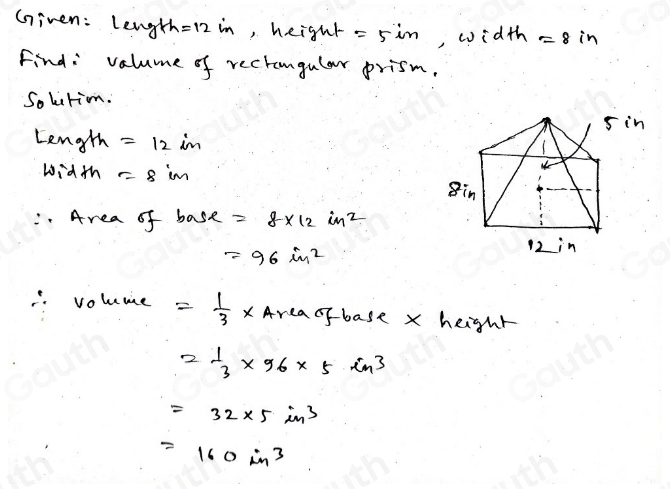 Given: Length=12 in, height = 5 in, width = 8 in
Find: valume of rectangular prism.
Solution.
Length = 12 in
Width = 8 in
∴ Area of base = 8×12 in²
= 96 in²
∴ volume = 1/3 × Area of base × height
= 1/3 × 96 × 5 in³
= 32×5 in³
= 160 in³
5 in
8in
12 in
Gauth